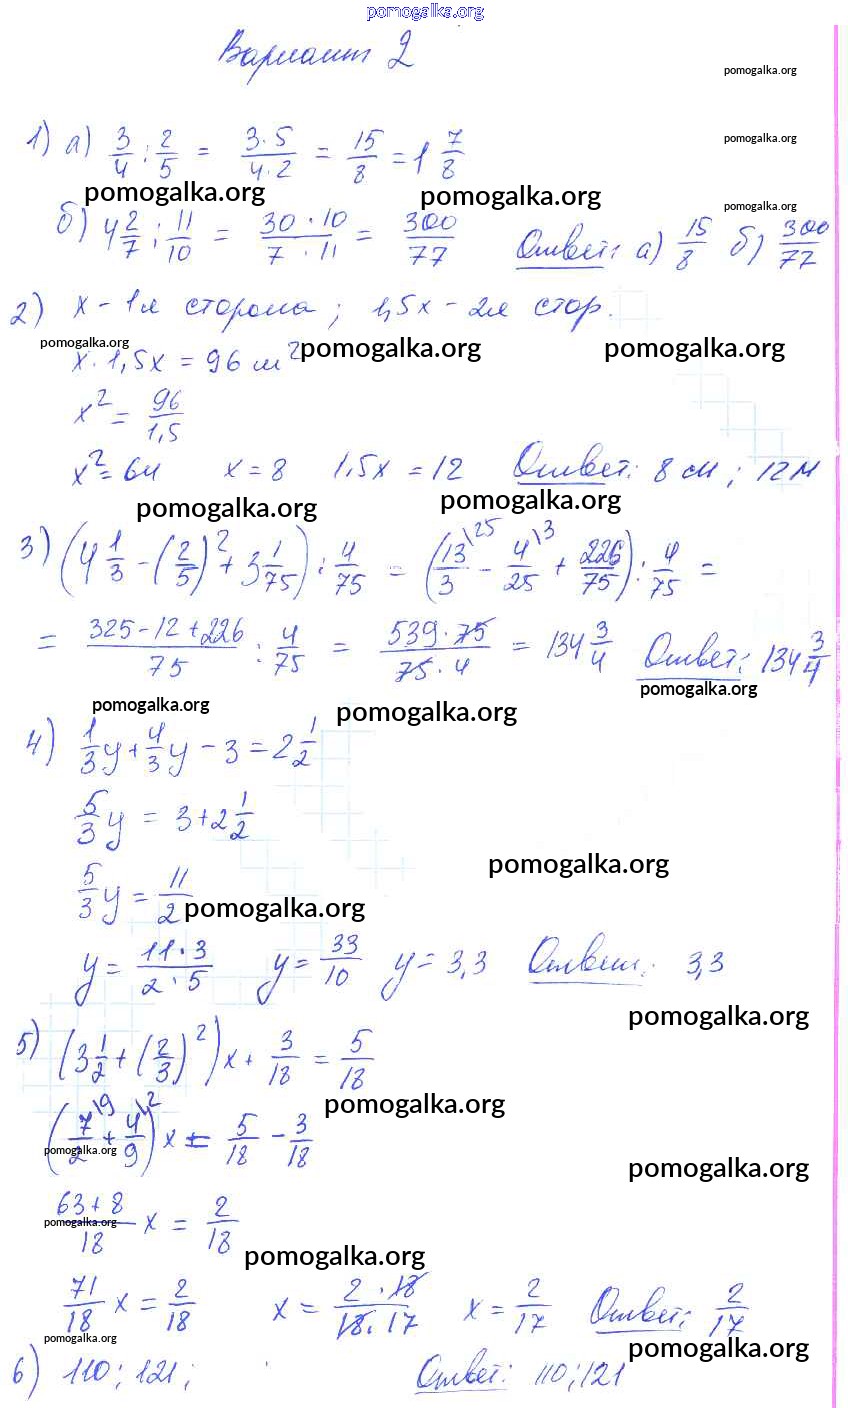 pomogalka.org
Вариант 2
pomogalka.org
1) а) 3/4 : 2/5 = 3·5/4·2 = 15/8 = 1 7/8
pomogalka.org
pomogalka.org pomogalka.org pomogalka.org
б) 4 2/7 : 11/10 = 30·10/7·11 = 300/77 Ответ: а) 15/8 б) 300/77
2) x - 1я сторона; 1,5x - 2я стор.
pomogalka.org pomogalka.org pomogalka.org
x·1,5x = 96 м²
x² = 96/1,5
x² = 64 x = 8 1,5x = 12 Ответ: 8 см; 12 м
pomogalka.org pomogalka.org
3) (4 1/3 - (2/5)² + 3 1/75) : 4/75 = (13/3 \25 - 4/25 \3 + 226/75) : 4/75 =
= 325-12+226/75 : 4/75 = 539·75/75·4 = 134 3/4 Ответ: 134 3/4
pomogalka.org pomogalka.org pomogalka.org
4) 1/3 y + 4/3 y - 3 = 2 1/2
5/3 y = 3 + 2 1/2
pomogalka.org
5/3 y = 11/2
pomogalka.org
y = 11·3/2·5 y = 33/10 y = 3,3 Ответ: 3,3
pomogalka.org
5) (3 1/2 + (2/3)²) x + 3/18 = 5/18
pomogalka.org
(7/2 \9 + 4/9 \2) x = 5/18 - 3/18
pomogalka.org pomogalka.org
63+8/18 x = 2/18
pomogalka.org pomogalka.org
71/18 x = 2/18 x = 2·18/18·17 x = 2/17 Ответ: 2/17
pomogalka.org pomogalka.org
6) 110; 121; Ответ: 110; 121